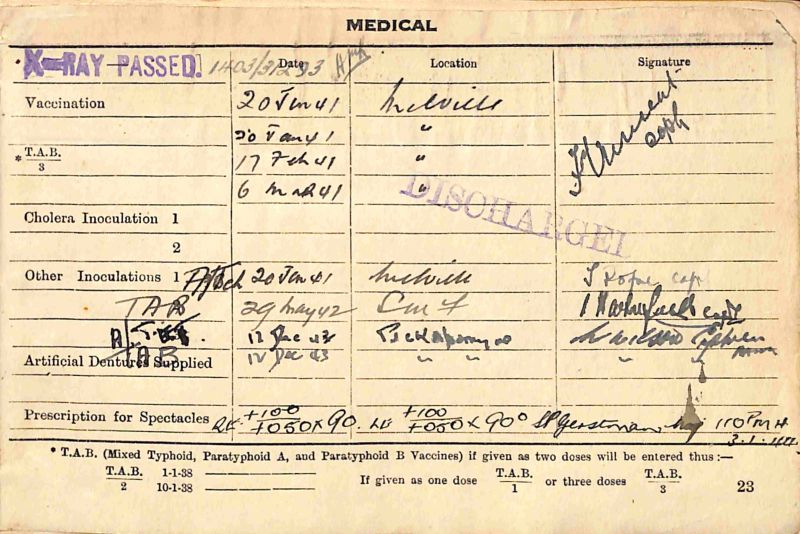 MEDICAL
X-RAY PASSED. 1403/31293 Date Location Signature
Vaccination 20 Jan 41 Melville
20 Jan 41 "
* T.A.B. 3 17 Feb 41 "
6 41 " Capt
DISCHARGED
Cholera Inoculation 1
2
Other Inoculations 1 A/Tet 20 Jan 41 Melville Capt
TAB 29 May 42 Capt
A/ 12 Dec 43
TAB 12 Dec 43 " " " "
Artificial Dentures Supplied
Prescription for Spectacles RE +100 / +050 x 90. LE +100 / +050 x 90° Maj 110 P M H
3.1.44
* T.A.B. (Mixed Typhoid, Paratyphoid A, and Paratyphoid B Vaccines) if given as two doses will be entered thus :—
T.A.B. 2 1-1-38 10-1-38 If given as one dose T.A.B. 1 or three doses T.A.B. 3 23